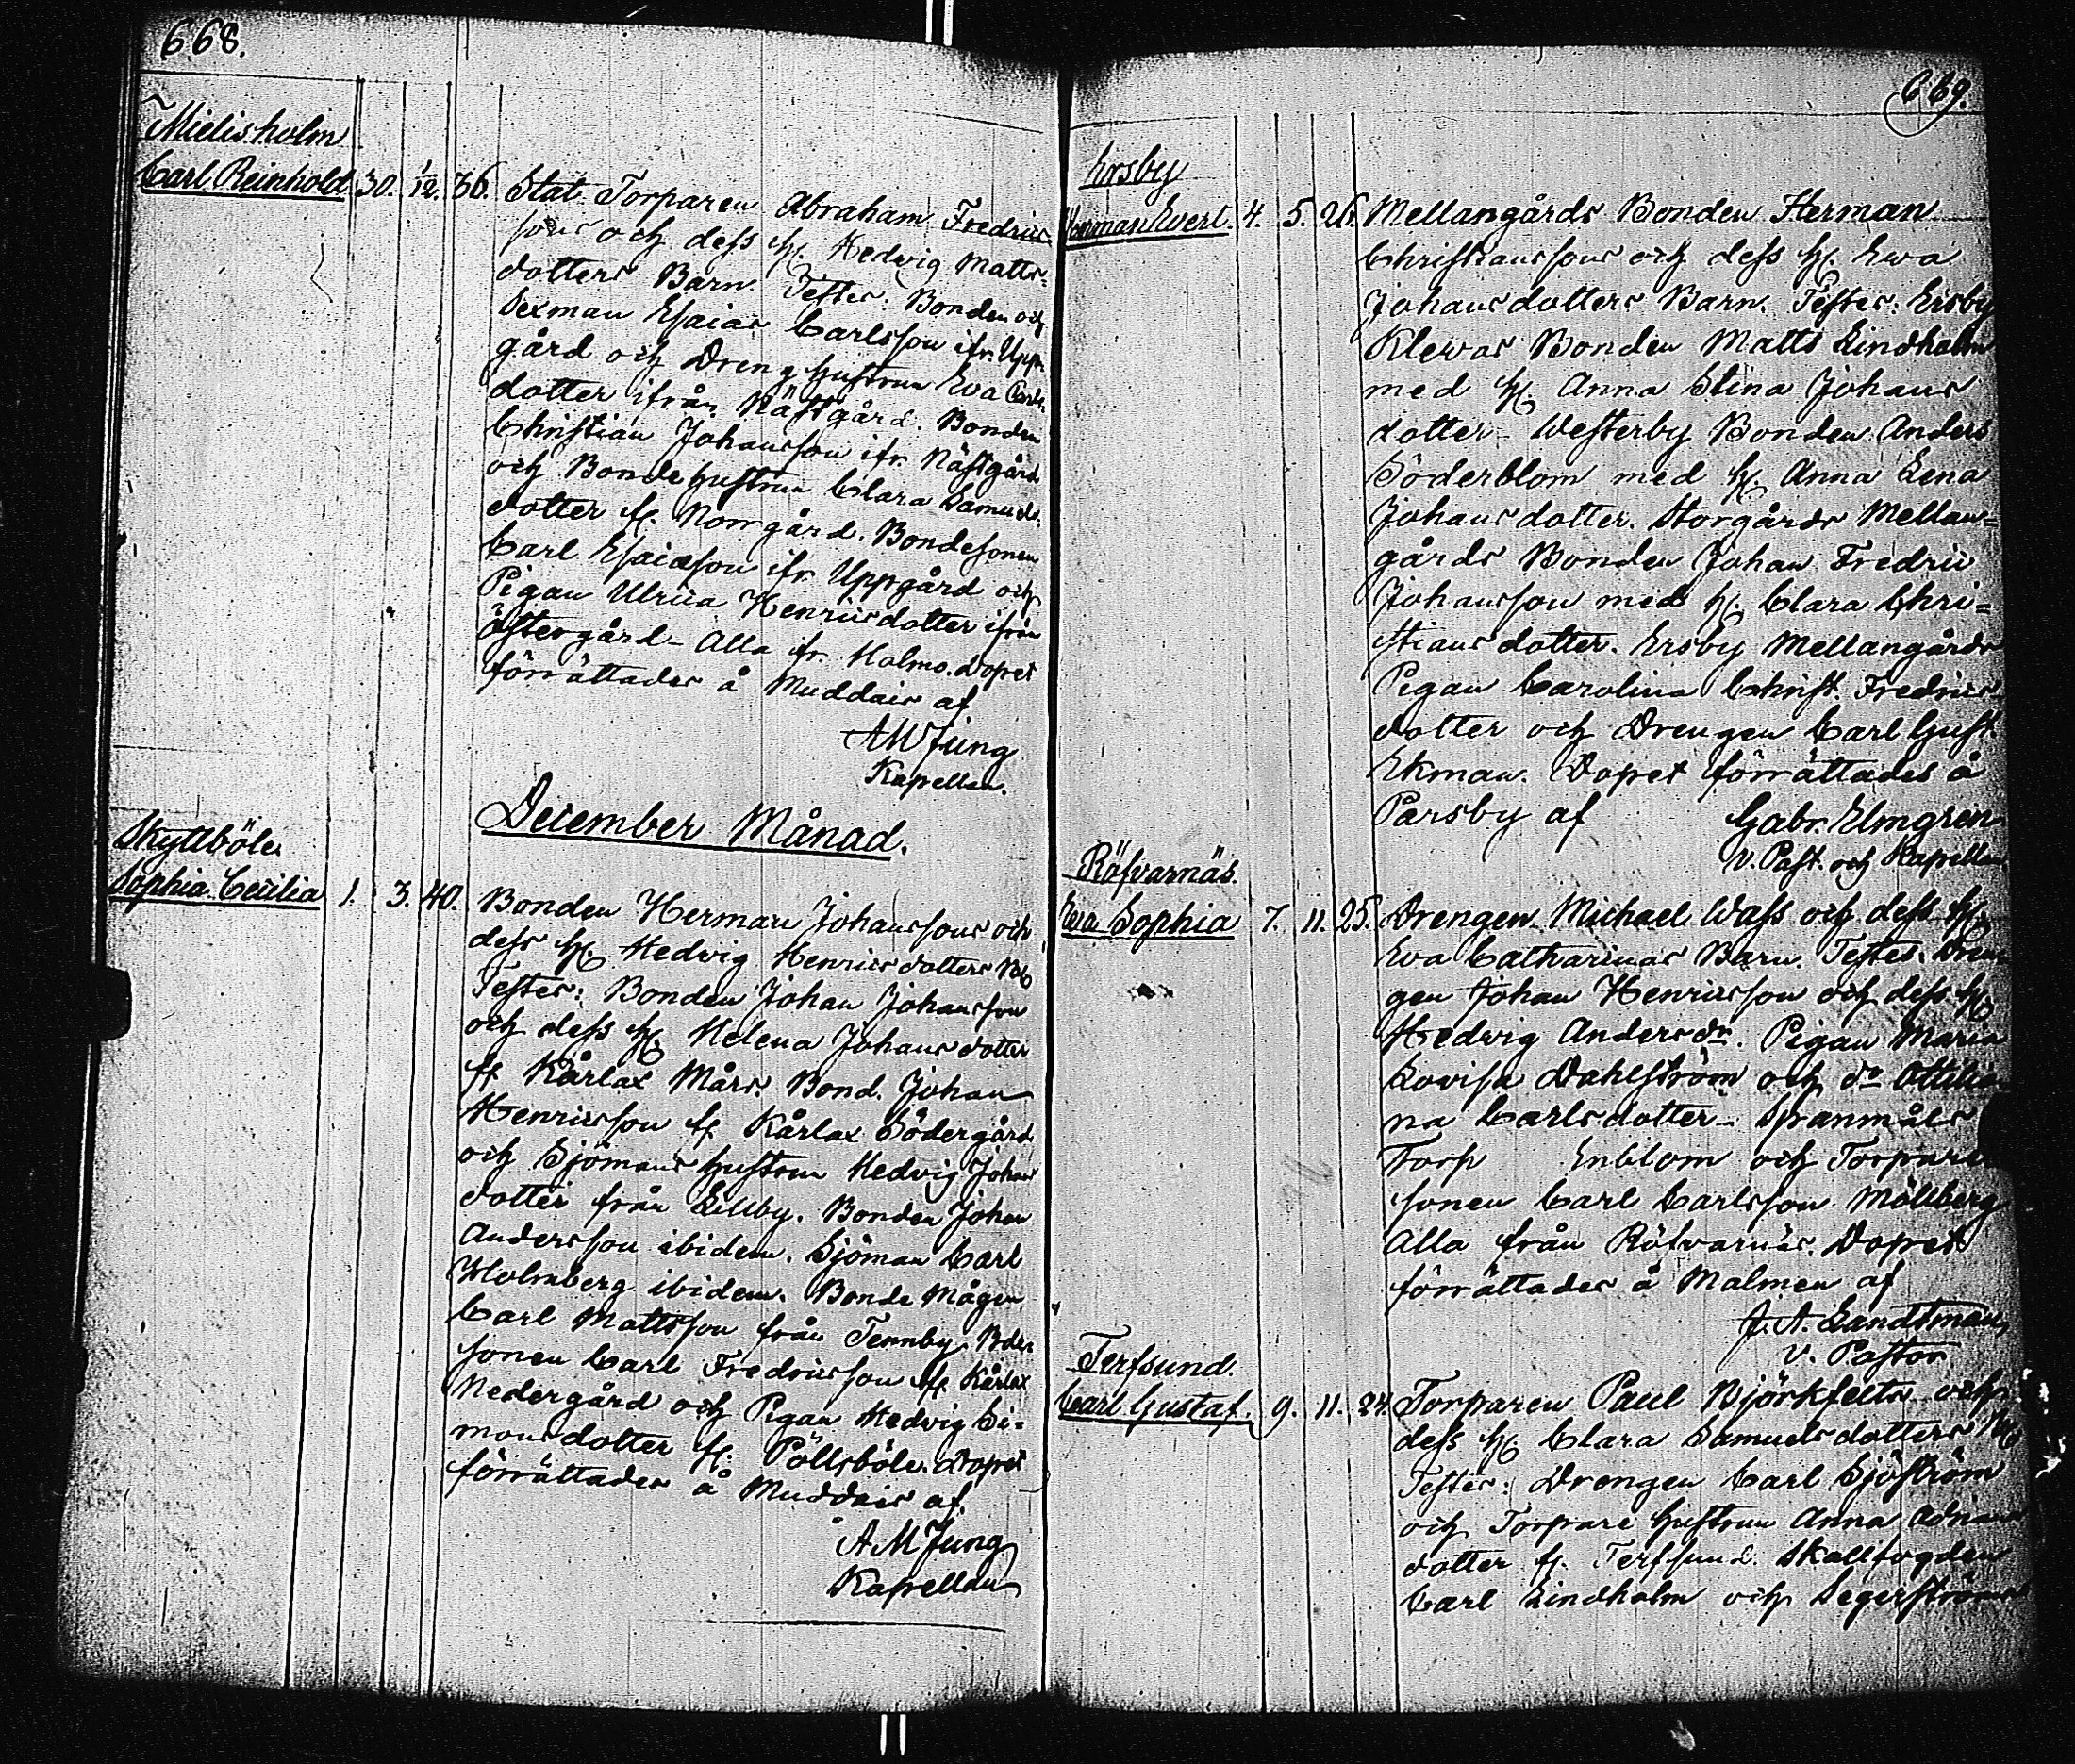 668.
Mielisholm
Carl Reinhold 30. 1/12. 36. Stat Torparen Abraham Fredrics
sons och dess H. Hedvig Matts-
dotters Barn. Testes: Bonden och
Sexman Esaias Carlsson ifr. Upp-
gård och Dreng hustrun Eva Carls
dotter ifrån Nästgård. Bonden
Christian Johansson ifr. Nästgård
och Bonde hustrun Clara Samuels-
dotter fr. Norrgård. Bondesonen
Carl Esaiason ifr. Uppgård och
Pigan Ulrica Henricsdotter ifrån
Östergård - Alla fr. Malmo. Dopet
förrättades å Muddais af
AMJung
Kapellan.
December Månad.
Skyttböle
Sophia Cecilia 1. 3. 40. Bonden Herman Johanssons och
dess H. Hedvig Henricsdotters
Testes: Bonden Johan Johansson
och dess H. Helena Johansdotter
fr. Kårlax Mårs. Bond. Johan
Henricsson fr. Kårlax Södergård
och Sjömans hustrun Hedvig Johans
dotter från Lillby. Bonden Johan
Andersson ibidem. Sjöman Carl
Holmberg ibidem. Bonde Mågen
Carl Mattsson från Tennby. Bde-
sonen Carl Fredricsson fr. Kårlax
Nedergård och Pigan Hedvig Si-
monsdotter fr. Pöllsböle. Dopet
förrättades å Muddais af
AMJung
Kapellan
669.
Ersby
Herman Everl. 4. 5. 26. Mellangårds Bonden Herman
Christianssons och dess H. Ewa
Johansdotters Barn. Testes: Ersby
Klewas Bonden Matts Lindholm
med H. Anna Stina Johans
dotter - Westerby Bonden Anders
Söderblom med H. Anna Lena
Johansdotter. Storgårds Mellan-
gårds Bonden Johan Fredric
Johansson med H. Clara Chri-
stiansdotter. Ersby Mellangårds
Pigan Carolina Christ. Fredrics
dotter och Drengen Carl Gust
Ekman. Dopet förrättades å
Parsby af Gabr. Elmgren
v. Past. och Kapellan
Röfvarnäs.
Eva Sophia 7. 11. 25. Drengen Michael Wass och dess H.
Eva Catharinas Barn. Testes: Dren
gen Johan Henricsson och dess H.
Hedvig Andersdr. Pigan Maria
Lovisa Dahlström och do Ottilia
na Carlsdotter - Spanmåls
Torp Enblom och Torpare
sonen Carl Carlsson Möllberg
Alla från Röfvarnäs. Dopet
förrättades å Malmen af
J. A. Landtman
v. Pastor
Terfsund.
Carl Gustaf. 9. 11. 24. Torparen Paul Björkfelts och
dess H. Clara Samuelsdotters
Testes: Drengen Carl Sjöström
och Torpare hustrun Anna Adrians
dotter fr. Terfsund. Skallfogden
Carl Lindholm och Segerströms